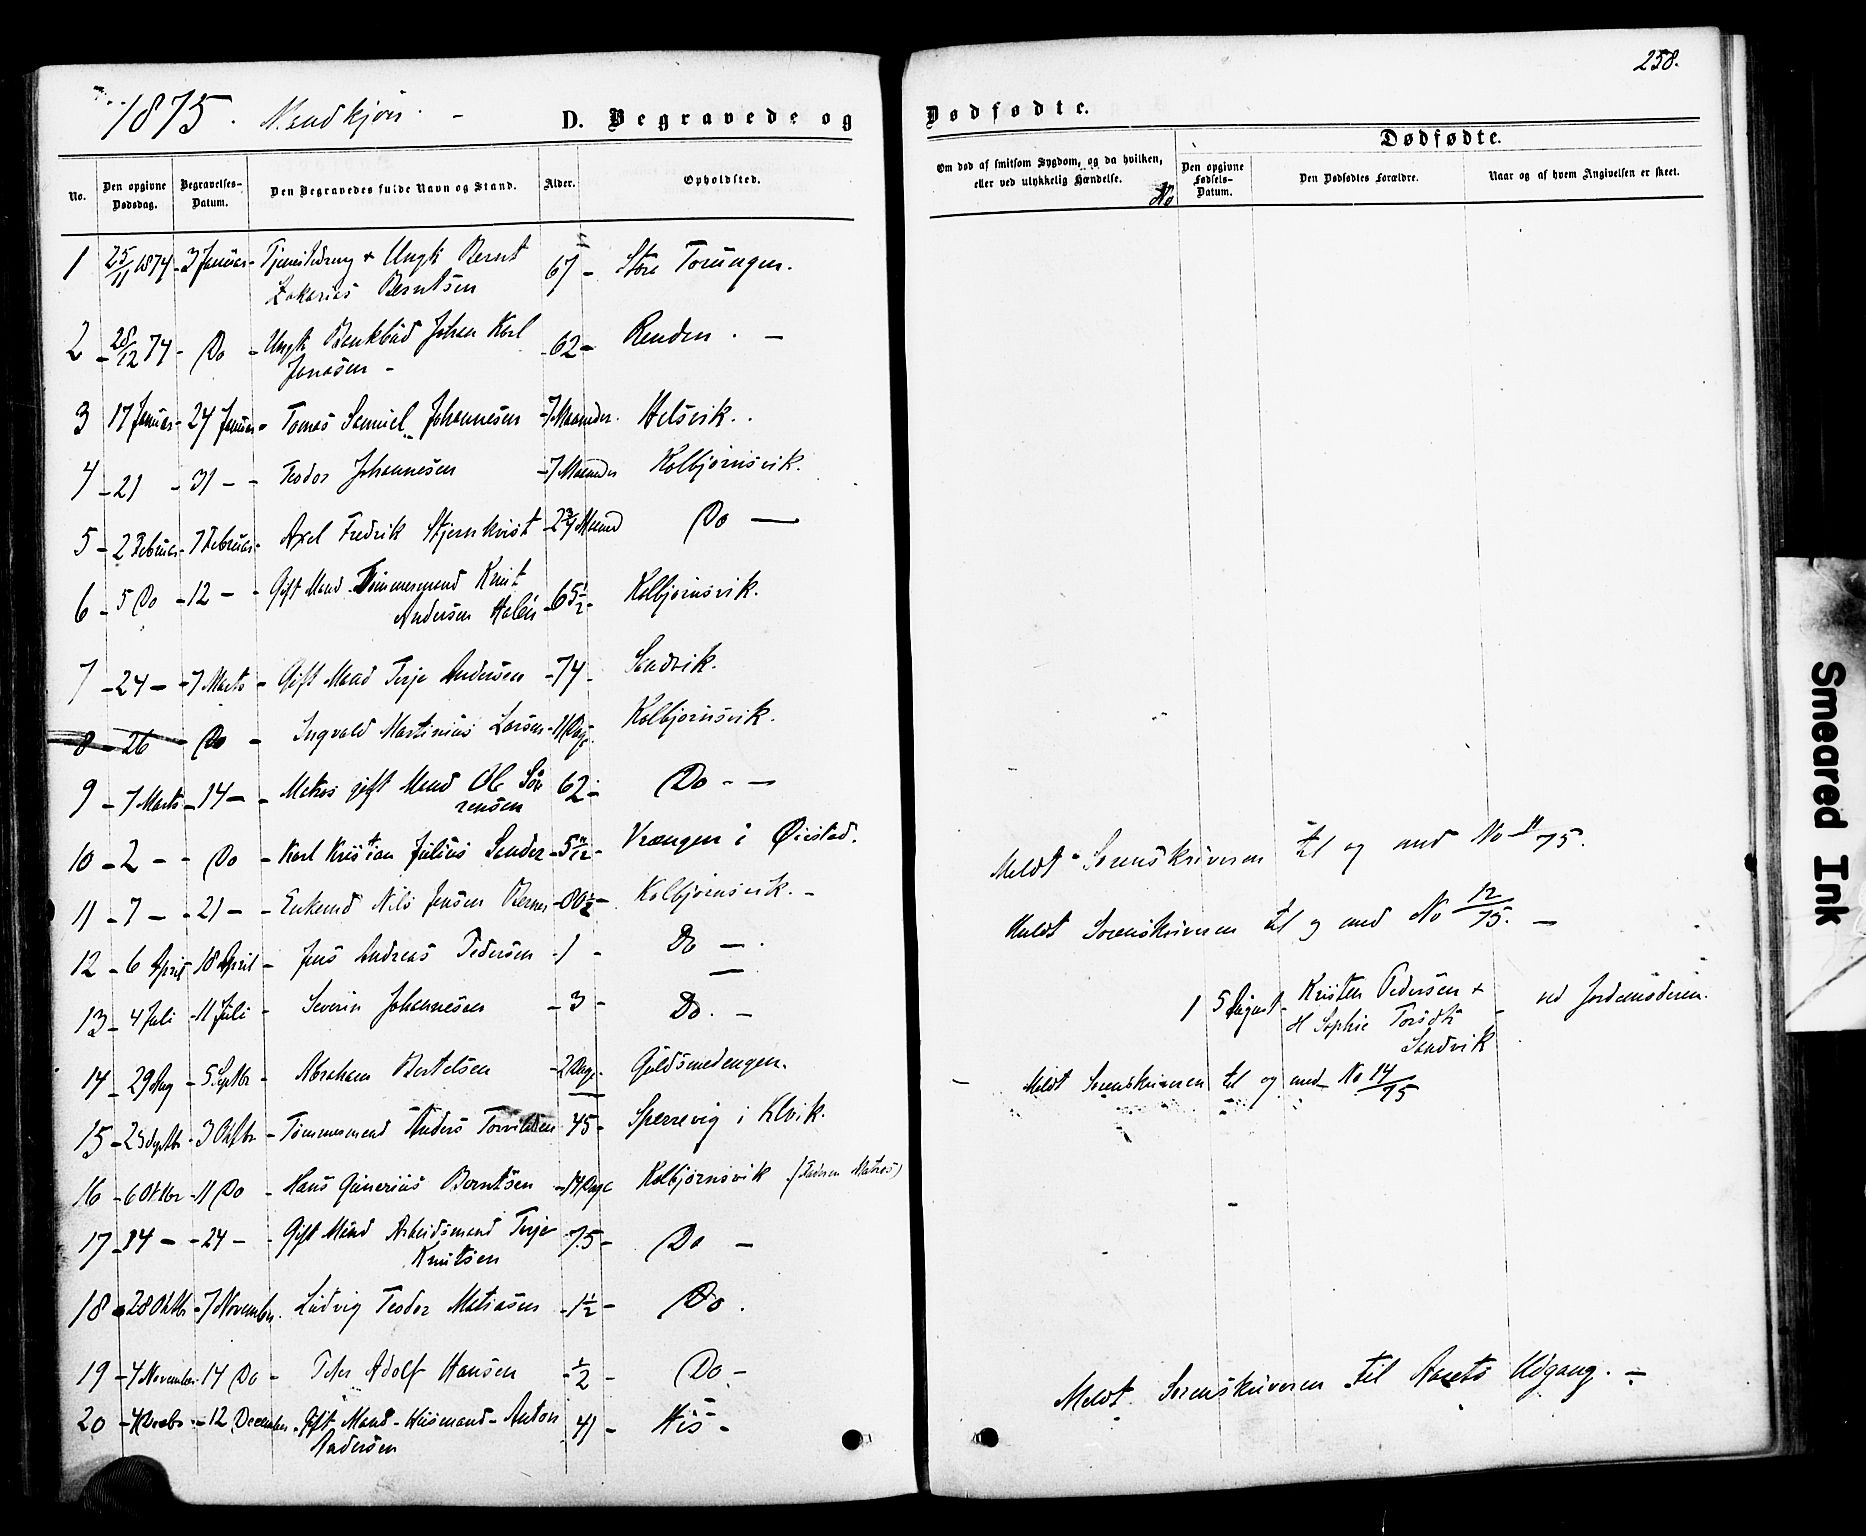 1875. Mandkjön. -
D. Begravede og
No.
Den opgivne Dødsdag.
Begravelses-Datum.
Den Begravedes fulde Navn og Stand.
Alder.
Opholdsted.
1 25/11 1874 - 3 Januar - Ungk Bernt 67 - Store Torungen.
Zakarias Berntsen
2 - 28/12 74 - Do - Ungk Johan Karl - 62 - Renden . -
Jonasen -
3 17 Januar - 24 Januar - Tomas Samuel Johannesen - 7 Maaneder. Helsvik..
4 - 21 - 31 - - Teodor Johannesen - 7 Maaneder Kolbjørnsvik.
5 - 2 Februar - 7 Februar - Axel Fredrik Stjernkvist - 2 3/4 Maaned Do -
6 - 5 Do - 12 - - Gift Mand Tömmermand Knut 65 1/2 - Kolbjørnsvik.
Andersen
7 - 24 - - 7 Marts - Gift Mand Terje Andersen - 74 - Sandvik.
8 - 26 - Do - Ingvald Martinius Larsen - 11 Dage. Kolbjørnsvik.
9 - 7 Marts - 14 - - Matros gift Mand Ole Sör 62 - Do - -
rensen
10 - 2 - - Do - Karl Kristian Julius Sander - 5 11/12 - Vrængen i Øiestad.
11 - 7 - - 21 - - Enkemd Nils Jensen - 80 1/2 - Kolbjørnsvik. -
12 - 6 April - 18 April - Jens Andreas Pedersen - 1 - Do - .
13 - 4 Juli - 11 Juli - Severin Johannesen - 3 - Do. -
14 - 29 Aug - 5 Septbr - Abraham Bertelsen - 2 Dage - Guldsmedengen.
15 - 25 Septbr - 3 Oktbr - Tömmermand Anders - 45 - Sperrevig i
16 - 6 Oktbr - 11 Do - Hans Gunerius Berntsen - 14 Dage Kolbjørnsvik (Faderen Matros)
17 - 14 - - 24 - - Gift Mand Arbeidsmand Terje - 75 - Do -
Knutsen
18 - 28 Oktbr - 7 November. Ludvig Teodor Matiasen - 1 1/2 - Do .
19 - 4 November - 14 Do - Peter Adolf Hansen - 1/2 - Do -
20 - 4 Decbr - 12 December - Gift Mand - Husmand - Anton 41 - His -
Pedersen
258.
Dødfødte.
Om død af smitsom Sygdom, og da hvilken,
eller ved ulykkelig Hændelse.
No
Dødfødte.
Den opgivne Fødsels-Datum.
Den Dødfødtes Forældre.
Naar og af hvem Angivelsen er skeet.
Meldt Sorenskriveren til og med No 11/75.
Meldt Sorenskriveren til og med No 12/75. -
1 5 August - Kristen Pedersen + - ved Jordemoderen.
H Sophie
Sandvik
- Meldt Sorenskriveren til og med No 14/75
Meldt Sorenskriveren til Aarets Udgang. -
Smeared Ink